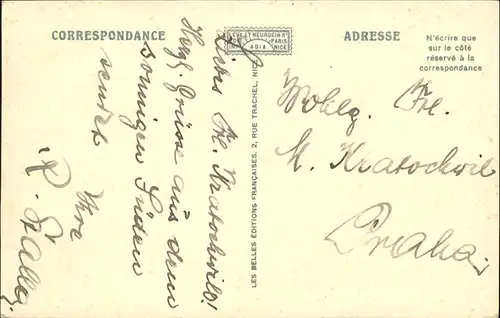 CORRESPONDANCE
LEVY ET NEURDEIN Rs
PARIS
IMP. ADIA NICE
ADRESSE
N'écrire que
sur le côté
réservé à la
correspondance
Liebes Frl. Kratochwil!
Herzl. Grüsse aus dem
sonnigen Süden
sendet
Ihre
LES BELLES ÉDITIONS FRANÇAISES, 2, RUE TRACHEL, NICE
Wohlg. Frl.
M. Kratochwil
Praha.